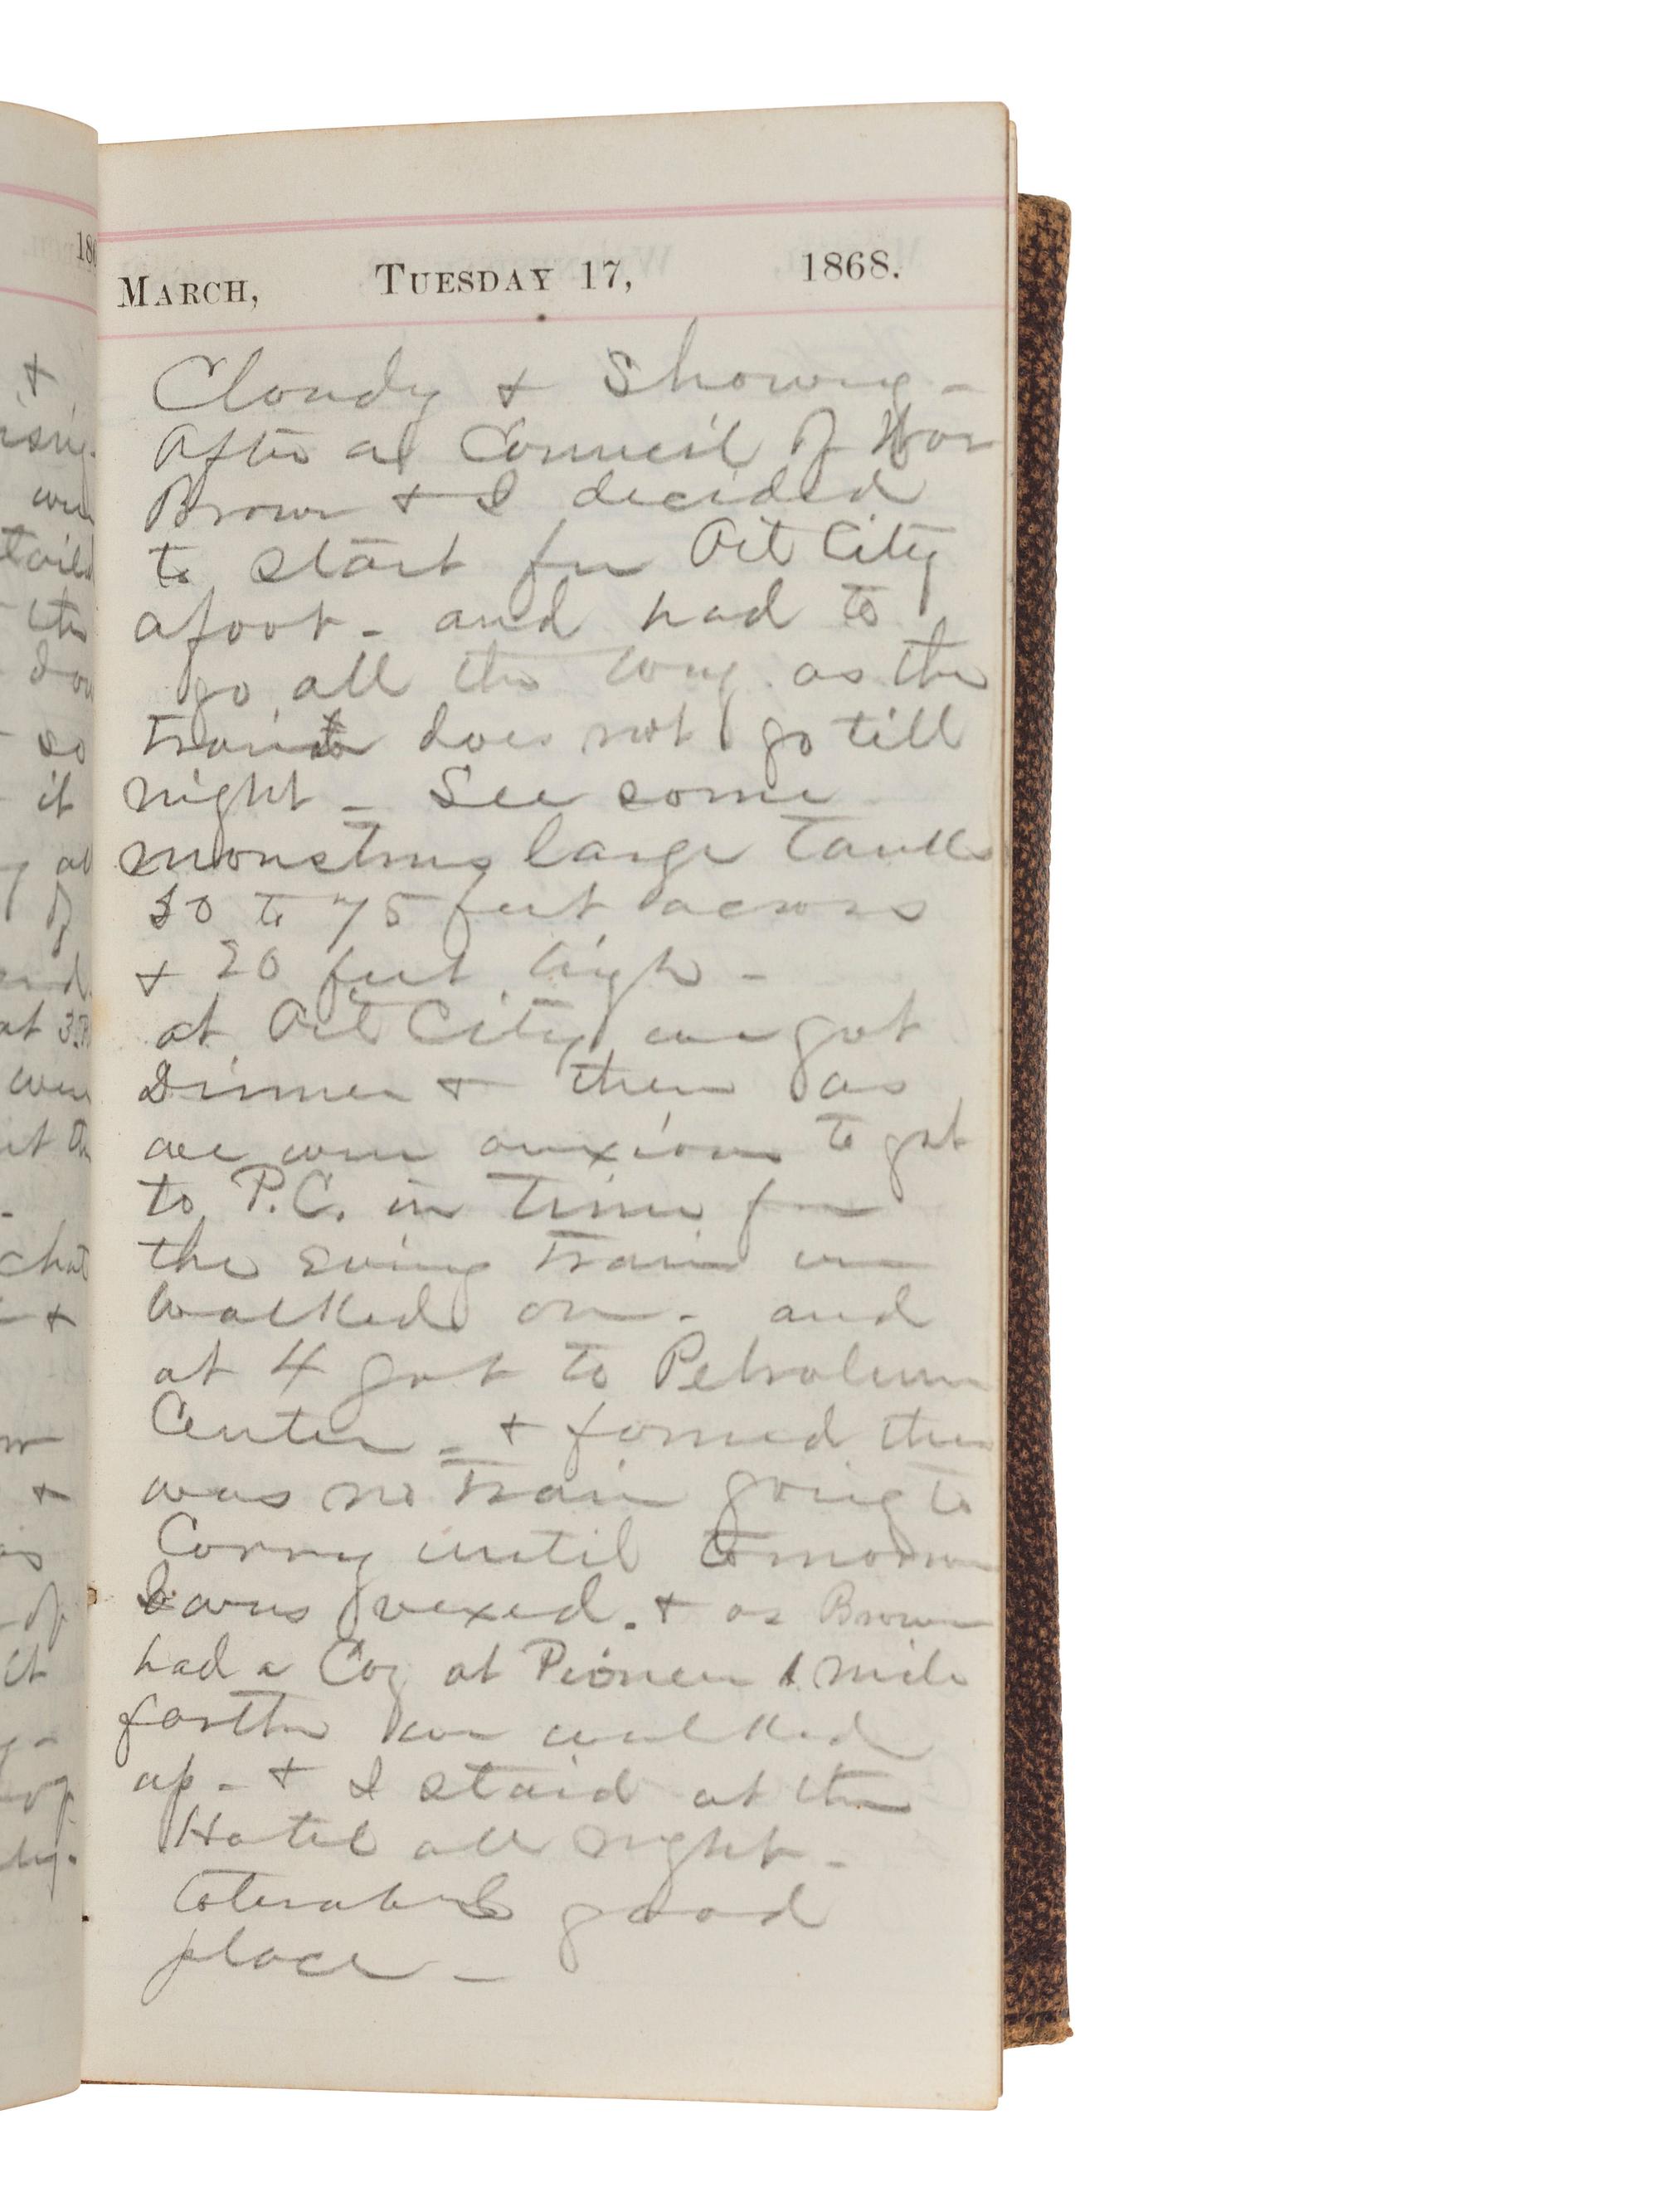 MARCH, TUESDAY 17, 1868.
Cloudy & Showery -
After a Council of War
Brown & I decided
to start for Oil City
afoot - and had to
go all the way as the
train does not go till
night - See some
monstrous large tanks
50 to 75 feet across
& 20 feet high -
at Oil City we got
Dinner & then as
we were anxious to get
to P.C. in time for
the evning train we
walked on - and
at 4 got to Petroleum
Center - & found there
was no train going to
Corry until tomorrow
I was vexed. & as Brown
had a Coz at Pioneer 1 mile
farther we walked
up - & I staid at the
Hotel all night -
tolerable good
place -